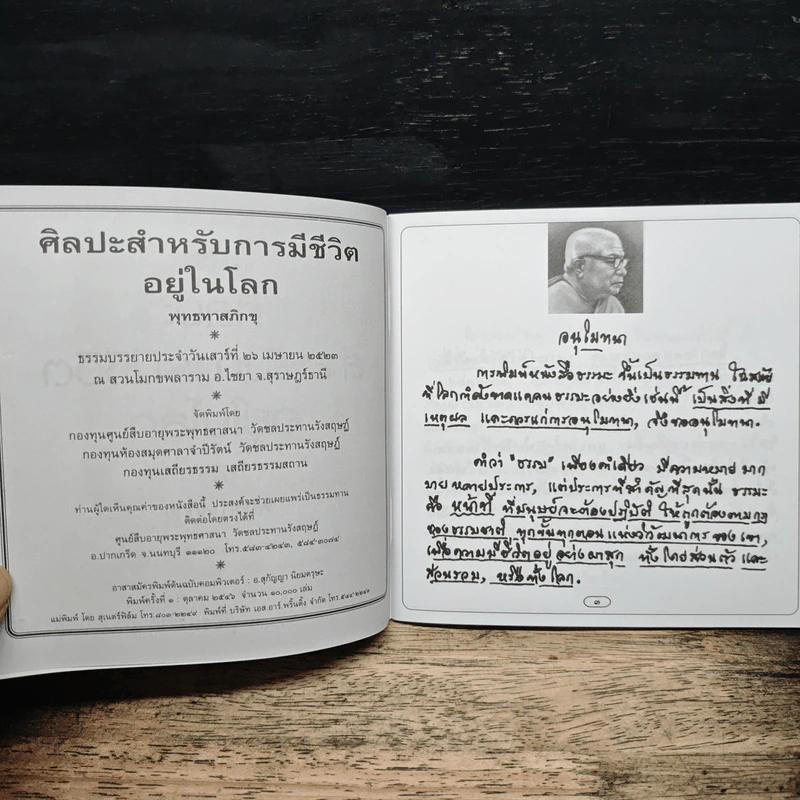 ศิลปะสำหรับการมีชีวิต
อยู่ในโลก
พุทธทาสภิกขุ
ธรรมบรรยายประจำวันเสาร์ที่ ๒๖ เมษายน ๒๕๒๓
ณ สวนโมกขพลาราม อ.ไชยา จ.สุราษฎร์ธานี
จัดพิมพ์โดย
กองทุนศูนย์สืบอายุพระพุทธศาสนา วัดชลประทานรังสฤษฎ์
กองทุนห้องสมุดศาลาจำปีรัตน์ วัดชลประทานรังสฤษฎ์
กองทุนเสถียรธรรม เสถียรธรรมสถาน
ท่านผู้ใดเห็นคุณค่าของหนังสือนี้ ประสงค์จะช่วยเผยแพร่เป็นธรรมทาน
ติดต่อโดยตรงได้ที่
ศูนย์สืบอายุพระพุทธศาสนา วัดชลประทานรังสฤษฎ์
อ.ปากเกร็ด จ.นนทบุรี ๑๑๑๒๐ โทร.๕๘๓-๔๒๔๓, ๕๘๔-๓๐๗๔
อาสาสมัครพิมพ์ต้นฉบับคอมพิวเตอร์ : อ.สุกัญญา นิยมตรุษะ
พิมพ์ครั้งที่ ๑ : ตุลาคม ๒๕๔๖ จำนวน ๑๐,๐๐๐ เล่ม
แม่พิมพ์ โดย สุเนตร์ฟิล์ม โทร.๘๐๓-๒๒๔๙ พิมพ์ที่ บริษัท เอส.อาร์.พริ้นติ้ง จำกัด
อนุโมทนา
การพิมพ์หนังสือธรรมะ ขึ้นเป็นธรรมทาน ในสมัย
ที่โลกกำลังขาดแคลนธรรมะอย่างยิ่งเช่นนี้ เป็นสิ่งที่มี
เหตุผล และควรแก่การอนุโมทนา, จึงขออนุโมทนา.
คำว่า "ธรรม" เพียงคำเดียว มีความหมายมาก
มายหลายประการ, แต่ประการที่สำคัญที่สุดนั้น ธรรมะ
คือ หน้าที่ ที่มนุษย์จะต้องปฏิบัติ ให้ถูกต้องตามกฎ
ของธรรมชาติ ทุกขั้นทุกตอน แห่งวิวัฒนาการ ของเขา,
เพื่อความมีชีวิตอยู่ อย่างผาสุก ทั้งโดยส่วนตัว และ
ส่วนรวม, หรือทั้งโลก.
๓